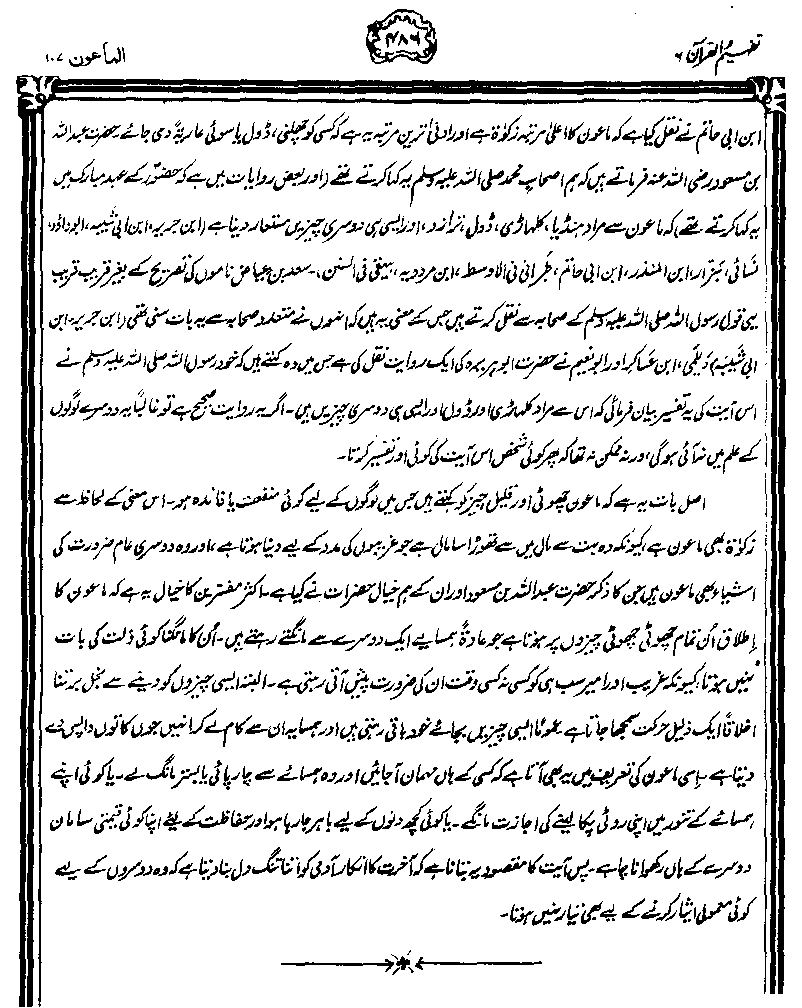 تفہیم القرآن ۶
۴۸۶
الماعون ۱۰۷
ابن ابی حاتم نے نقل کیا ہے کہ ماعون کا اعلیٰ مرتبہ زکوٰۃ ہے اور ادنیٰ ترین مرتبہ یہ ہے کہ کسی کو چھلنی، ڈول یا سوئی عاریۃً دی جائے۔ حضرت عبداللہ
بن مسعود رضی اللہ عنہ فرماتے ہیں کہ ہم اصحاب محمد صلی اللہ علیہ وسلم یہ کہا کرتے تھے (اور بعض روایات میں ہے کہ حضورؐ کے عہد مبارک میں
یہ کہا کرتے تھے) کہ ماعون سے مراد ہنڈیا، کلہاڑی، ڈول، ترازو، اور ایسی ہی دوسری چیزیں مستعار دینا ہے (ابن جریر، ابن ابی شیبہ، ابوداؤد،
نسائی، بزار، ابن المنذر، ابن ابی حاتم، طبرانی فی الاوسط، ابن مردویہ، بیہقی فی السنن)۔ سعد بن عیاض ناموں کی تصریح کے بغیر قریب قریب
یہی قول رسول اللہ صلی اللہ علیہ وسلم کے صحابہ سے نقل کرتے ہیں جس کے معنی یہ ہیں کہ انہوں نے متعدد صحابہ سے یہ بات سنی تھی (ابن جریر، ابن
ابی شیبہ)۔ دیلمی، ابن عساکر اور ابو نعیم نے حضرت ابوہریرہ کی ایک روایت نقل کی ہے جس میں وہ کہتے ہیں کہ خود رسول اللہ صلی اللہ علیہ وسلم نے
اس آیت کی یہ تفسیر بیان فرمائی کہ اس سے مراد کلہاڑی اور ڈول اور ایسی ہی دوسری چیزیں ہیں۔ اگر یہ روایت صحیح ہے تو غالباً یہ دوسرے لوگوں
کے علم میں نہ آئی ہوگی، ورنہ ممکن نہ تھا کہ پھر کوئی شخص اس آیت کی کوئی اور تفسیر کرتا۔
اصل بات یہ ہے کہ ماعون چھوٹی اور قلیل چیز کو کہتے ہیں جس میں لوگوں کے لیے کوئی منفعت یا فائدہ ہو۔ اس معنی کے لحاظ سے
زکوٰۃ بھی ماعون ہے، کیونکہ وہ بہت سے مال میں سے تھوڑا سا مال ہے جو غریبوں کی مدد کے لیے دینا ہوتا ہے، اور وہ دوسری عام ضرورت کی
اشیاء بھی ماعون ہیں جن کا ذکر حضرت عبداللہ بن مسعود اور ان کے ہم خیال حضرات نے کیا ہے۔ اکثر مفسرین کا خیال یہ ہے کہ ماعون کا
اطلاق اُن تمام چھوٹی چھوٹی چیزوں پر ہوتا ہے جو عادۃً ہمسایے ایک دوسرے سے مانگتے رہتے ہیں۔ اُن کا مانگنا کوئی ذلت کی بات
نہیں ہوتا، کیونکہ غریب اور امیر سب ہی کو کسی نہ کسی وقت ان کی ضرورت پیش آتی رہتی ہے۔ البتہ ایسی چیزوں کو دینے سے بخل برتنا
اخلاقاً ایک ذلیل حرکت سمجھا جاتا ہے۔ عموماً ایسی چیزیں بجائے خود باقی رہتی ہیں اور ہمسایہ ان سے کام لے کر انہیں جوں کا توں واپس دے
دیتا ہے۔ اِسی ماعون کی تعریف میں یہ بھی آتا ہے کہ کسی کے ہاں مہمان آجائیں اور وہ ہمسائے سے چارپائی یا بستر مانگ لے۔ یا کوئی اپنے
ہمسائے کے تنور میں اپنی روٹی پکا لینے کی اجازت مانگے۔ یا کوئی کچھ دنوں کے لیے باہر جا رہا ہو اور حفاظت کے لیے اپنا کوئی قیمتی سامان
دوسرے کے ہاں رکھوانا چاہے۔ پس آیت کا مقصود یہ بتانا ہے کہ آخرت کا انکار آدمی کو اتنا تنگ دل بنا دیتا ہے کہ وہ دوسروں کے لیے
کوئی معمولی ایثار کرنے کے لیے بھی تیار نہیں ہوتا۔